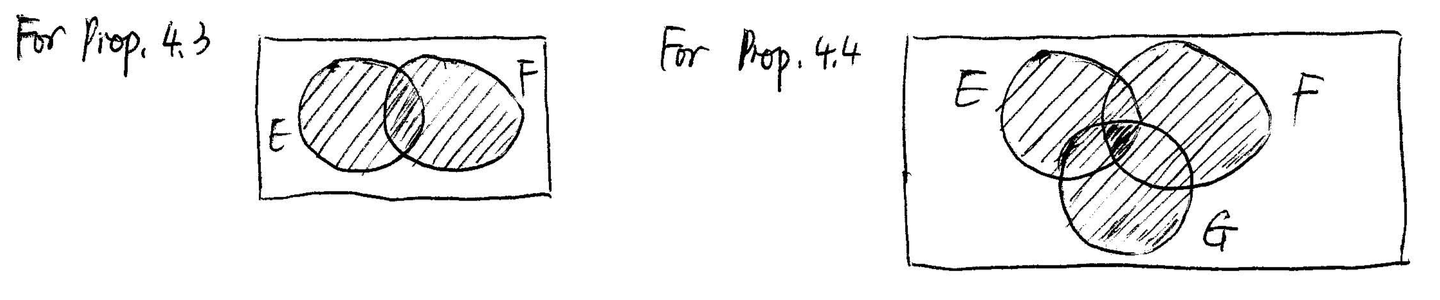 For Prop. 4.3
E
F
For Prop. 4.4
E
F
G